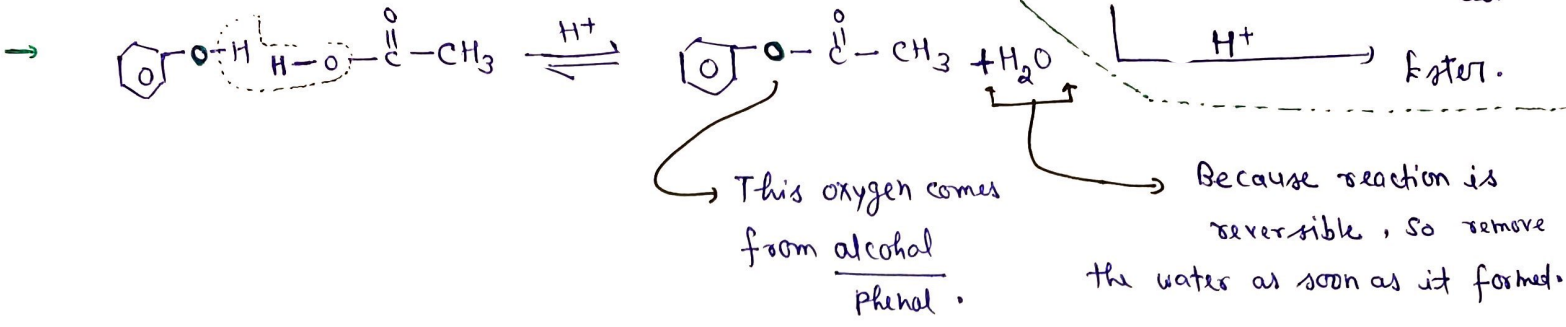 → O-H H-O-C-CH3 ⇌ O-C-CH3 + H2O
O O
H+ H+
H+ → Ester.
This oxygen comes
from alcohal
phenol.
Because reaction is
reversible, so remove
the water as soon as it formed.